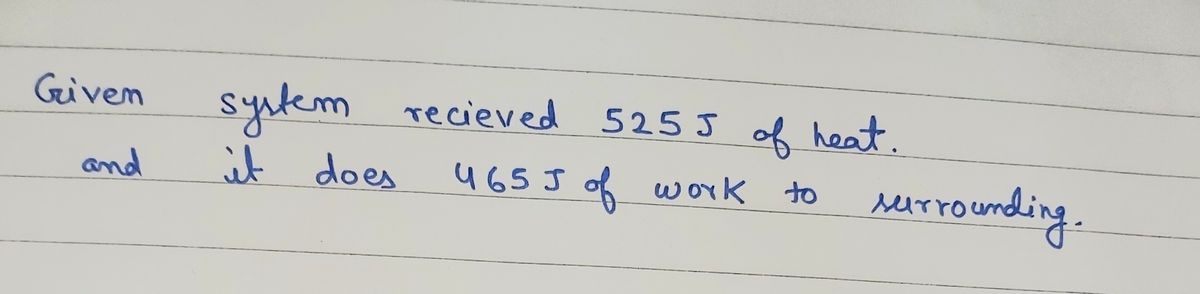 Given system recieved 525 J of heat.
and it does 465 J of work to surrounding.